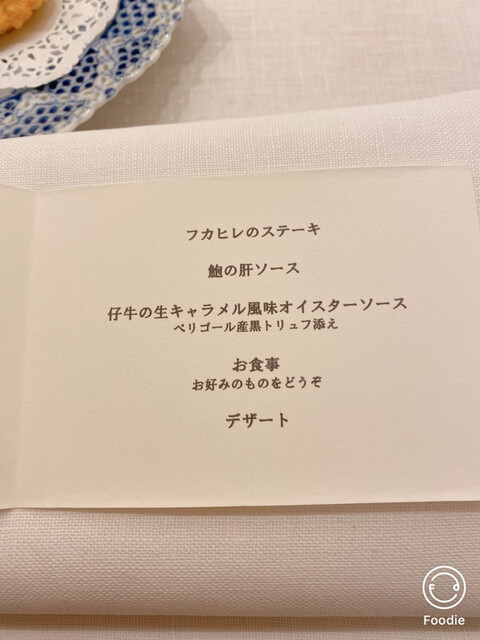 フカヒレのステーキ
鮑の肝ソース
仔牛の生キャラメル風味オイスターソース
ペリゴール産黒トリュフ添え
お食事
お好みのものをどうぞ
デザート
Foodie